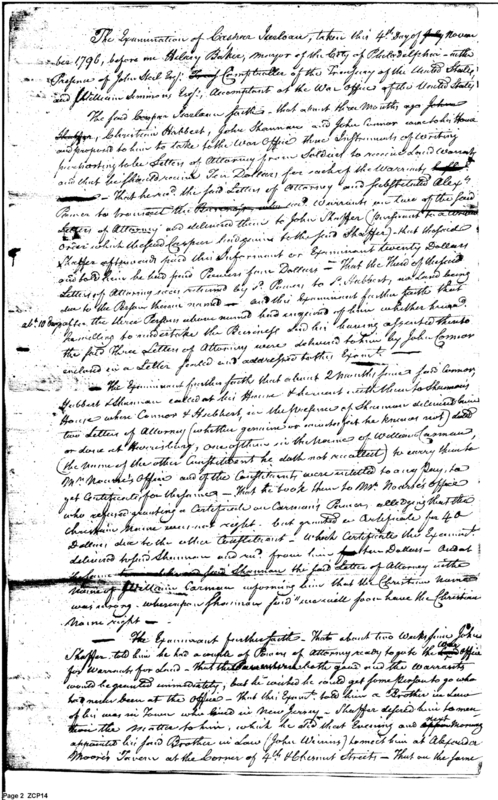 The Examination of Casper Iserloan, taken this 4th day of Novem
ber 1796, before me Hilary Baker, mayor of the City of Philadelphia in the
Presence of John Steel Esq. Comptroller of the Treasury of the United States,
and William Simmons Esq., Accomptant at the War Office of the United States
The said Casper Iserloan saith - that about three Months ago John
Shaffer, Christian Hubbert, John Shannan and John Connor came to his House
and proposed to him to take to the War Office three Instruments of Writing
purporting to be Letters of Attorney from Soldiers to receive Land Warrants
and that he should receive Ten Dollars for each of the Warrants,
- That he rec'd the said Letters of Attorney and substituted Alexr
Power to transact the Warrants on two of the said
Letters of Attorney and delivered them to John Shaffer (
order which the said Casper had given to the said Shaffer) - that the said
Shaffer afterwards paid this Informant or Examinant twenty Dollars
and told him he had paid Powers four Dollars - That the Third of the said
Letters of Attorney was returned by sd. Power to sd. Hubbert, no Land being
due to the Person therein named - and this Examinant further saith that
abt. 10 days after the three Persons above named had enquired of him whether he was
willing to undertake the Business and his having assented thereto
the said Three Letters of Attorney were delivered to him by John Connor
enclosed in a Letter sealed and addressed to this Examt. -
- The Examinant further saith that about 2 Months since said Connor,
Hubbert & Shannan called at his House & he went with them to Shannan's
House where Connor & Hubbert, in the presence of Shannan delivered him
two Letters of Attorney (whether genuine or counterfeit he knows not) dated
or done at Harrisburg, one of them in the name of William Carman,
(the name of the other Constituent he doth not recollect) to carry them to
Mr. Nourse's Office and if the Constituents were entitled to any Pay, to
get Certificates for the same - That he took them to Mr. Nourse's Office
who refused granting a Certificate on Carman's Power, alledging that the
Christian Name was not right. but granted a Certificate for 40
Dollars due to the other Constituent - Which Certificate this Examint.
delivered to said Shannan and recd. from him ten Dollars - And at
the same the said Letter of Attorney in the
Name of William Carman informing him that the Christian Name
was wrong - whereupon Shannan said "we will soon have the Christian
Name right -
- The Examinant further saith - That about two Weeks since John
Shaffer told him he had a couple of Powers of Attorney ready to go to the War Office
for Warrants for Land - that both good and the Warrants
would be granted immediately, but he wished he could get some person to go who
had never been at the Office - That this Examt. told him a Brother in Law
of his was in Town who lived in New Jersey - Shaffer desired him to men
tion the matter to him, which he did that Evening and next Morning
appointed his said Brother in Law (John Winins) to meet him at Alexander
Moore's Tavern at the Corner of 4th & Chesnut Streets - That on the same
Page 2 ZCP14